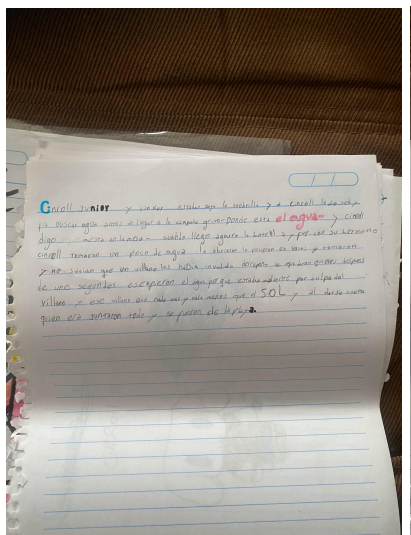 Cincoll junior y sinker estaba bajo la sombrilla y a cincoll le da sed y
fue a buscar agua antes de llegar a la campaña grito-Donde esta el agua- y cincoll
digo en la mesa- cuando llego agarro la botella y fue con su hermano
cincoll tomaron un poco de agua la abrieron la pusieron en vasos y tomaron
y no sabian que un villano los habia invadido despues se quedaron quietos despues
de unos segundos escupieron el agua porque estaba caliente por culpa del
villano y ese villano era nada mas y nada menos que el SOL y al darse cuenta
quien era juntaron todo y se fueron de la playa.